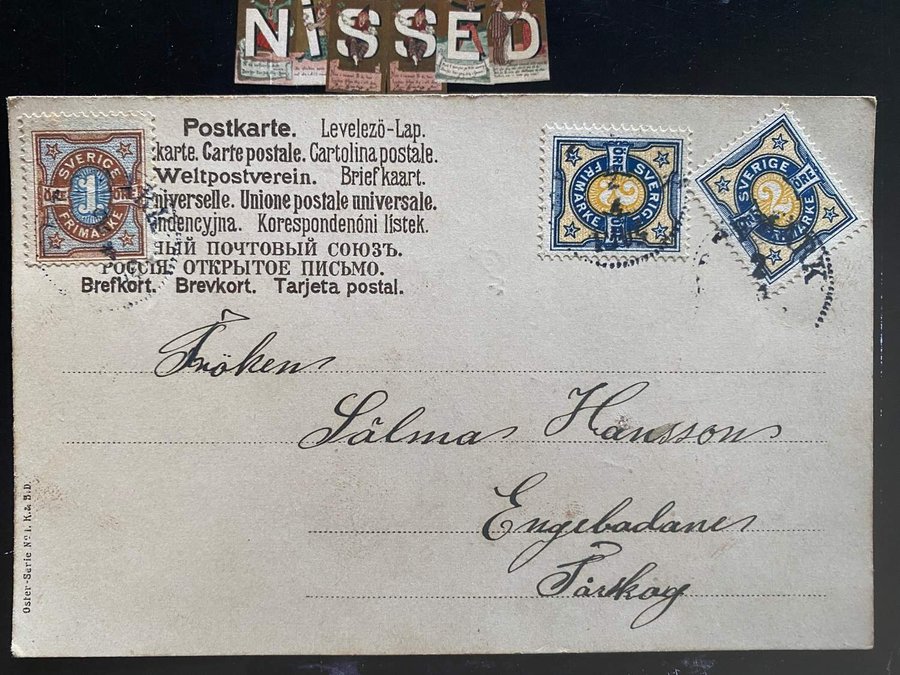 NiSSED
Postkarte. Levelezö-Lap.
karte. Carte postale. Cartolina postale.
Weltpostverein. Brief kaart.
niverselle. Unione postale universale.
ndencyjna. Korespondenóni lístek.
ный почтовый союзъ.
РОССІЯ. ОТКРЫТОЕ ПИСЬМО.
Brefkort. Brevkort. Tarjeta postal.
SVERIGE
1
ÖRE ÖRE
FRIMÄRKE
SVERIGE
2
ÖRE ÖRE
FRIMÄRKE
SVERIGE
2
ÖRE
FRIMÄRKE
Fröken
Sälma Hansson
Engebadane
Fårskog
Oster-Serie No 1. K. & B. D.